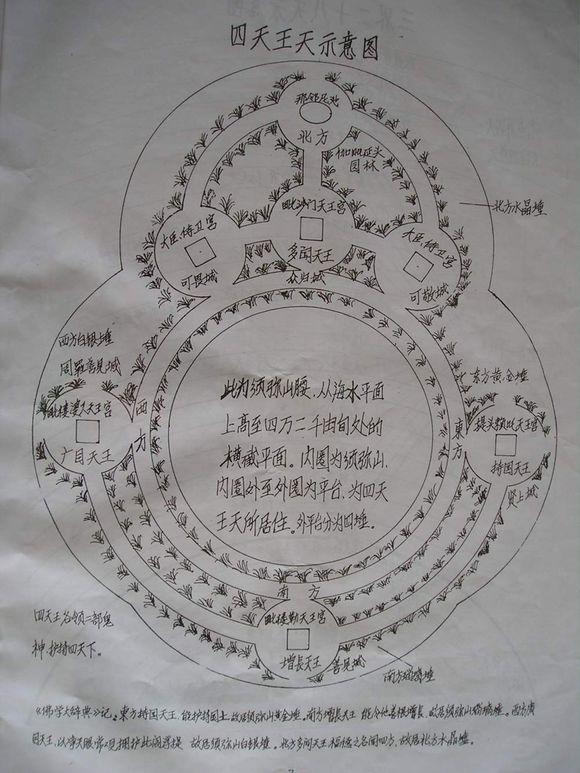 四天王天示意图
那邻尼池
北方
伽毗延头
园林
北方水晶埵
毗沙门天王宫
大臣、侍卫宫
大臣、侍卫宫
多闻天王
可畏城
众归城
可敬城
西方白银埵
周罗善见城
东方黄金埵
毗楼博叉天王宫
西方
广目天王
提头赖吒天王宫
東方
持国天王
贤上城
此为须弥山腰，从海水平面
上高至四万二千由旬处的
横截平面。内圈为须弥山，
内圈外至外圈为平台，为四天
王天所居住。外平台分为四埵。
南方
毗楼勒天王宫
增長天王
善见城
南方琉璃埵
四天王各领二部鬼
神护持四天下。
《佛学大辞典》记：東方持国天王，能护持国土，故居须弥山黄金埵。南方增長天王 能令他善根增长，故居须弥山琉璃埵。西方廣
目天王，以净天眼常观拥护此阎浮提 故居须弥山白银埵。北方多闻天王福德之名闻四方，故居北方水晶埵。